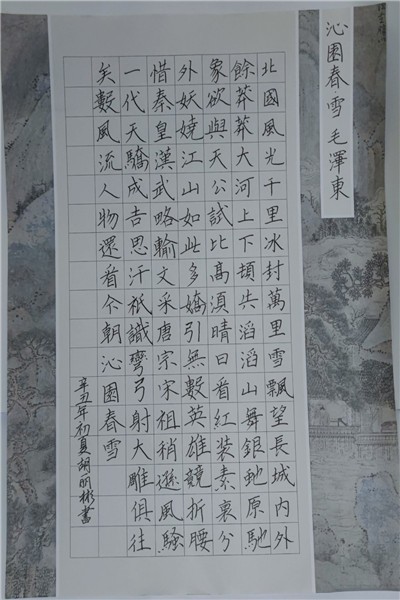 沁園春雪 毛澤東
北國風光千里冰封萬里雪飄望長城內外
餘莽莽大河上下頓失滔滔山舞銀虵原馳
象欲與天公試比高湏晴日看紅裝素裹分
外妖嬈江山如此多嬌引無數英雄競折腰
惜秦皇漢武略輸文采唐宗宋祖稍遜風騷
一代天驕成吉思汗祇識彎弓射大雕俱往
矣數風流人物還看今朝沁園春雪
辛丑年初夏胡明彬書